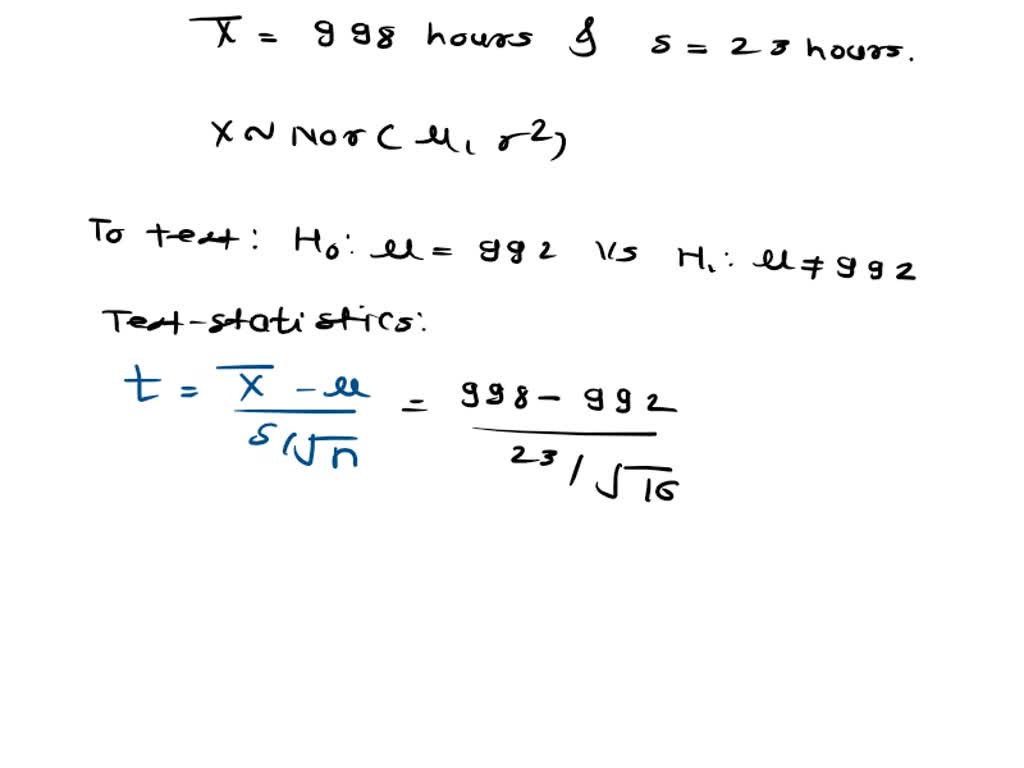 X̅ = 998 hours & s = 23 hours.
X ~ Nor(μ, σ²)
To test: H₀: μ = 992 V/s H₁: μ ≠ 992
Test-statistics:
t = (X̅ - μ)/(s/√n) = (998 - 992)/(23/√16)